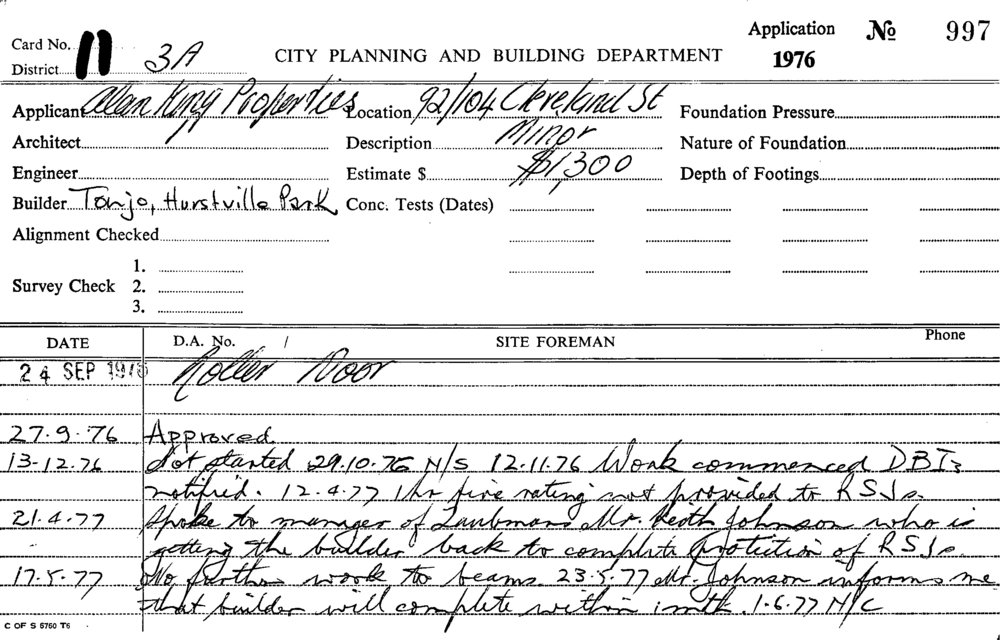 Application No 997
1976
Card No. 11
District 3A
CITY PLANNING AND BUILDING DEPARTMENT
Applicant Allan King Properties Location 92/104 Cleveland St Foundation Pressure
Architect Description Minor Nature of Foundation
Engineer Estimate $ $1,300 Depth of Footings
Builder Tonjo, Hurstville Park Conc. Tests (Dates)
Alignment Checked
1.
Survey Check 2.
3.
DATE D.A. No. / SITE FOREMAN Phone
24 SEP 1976 Roller Door
27.9.76 Approved
13-12.76 Not started 29.10.76 N/S 12.11.76 Work commenced DBI
notified. 12.4.77 1hr fire rating not provided to RSJs.
21.4.77 Spoke to manager of Taubmans Mr. Keith Johnson who is
getting the builder back to complete protection of RSJs.
17.5.77 No further work to beams. 23.5.77 Mr. Johnson informs me
that builder will complete within 1 mth. 1.6.77 N/C
C OF S 5760 T6